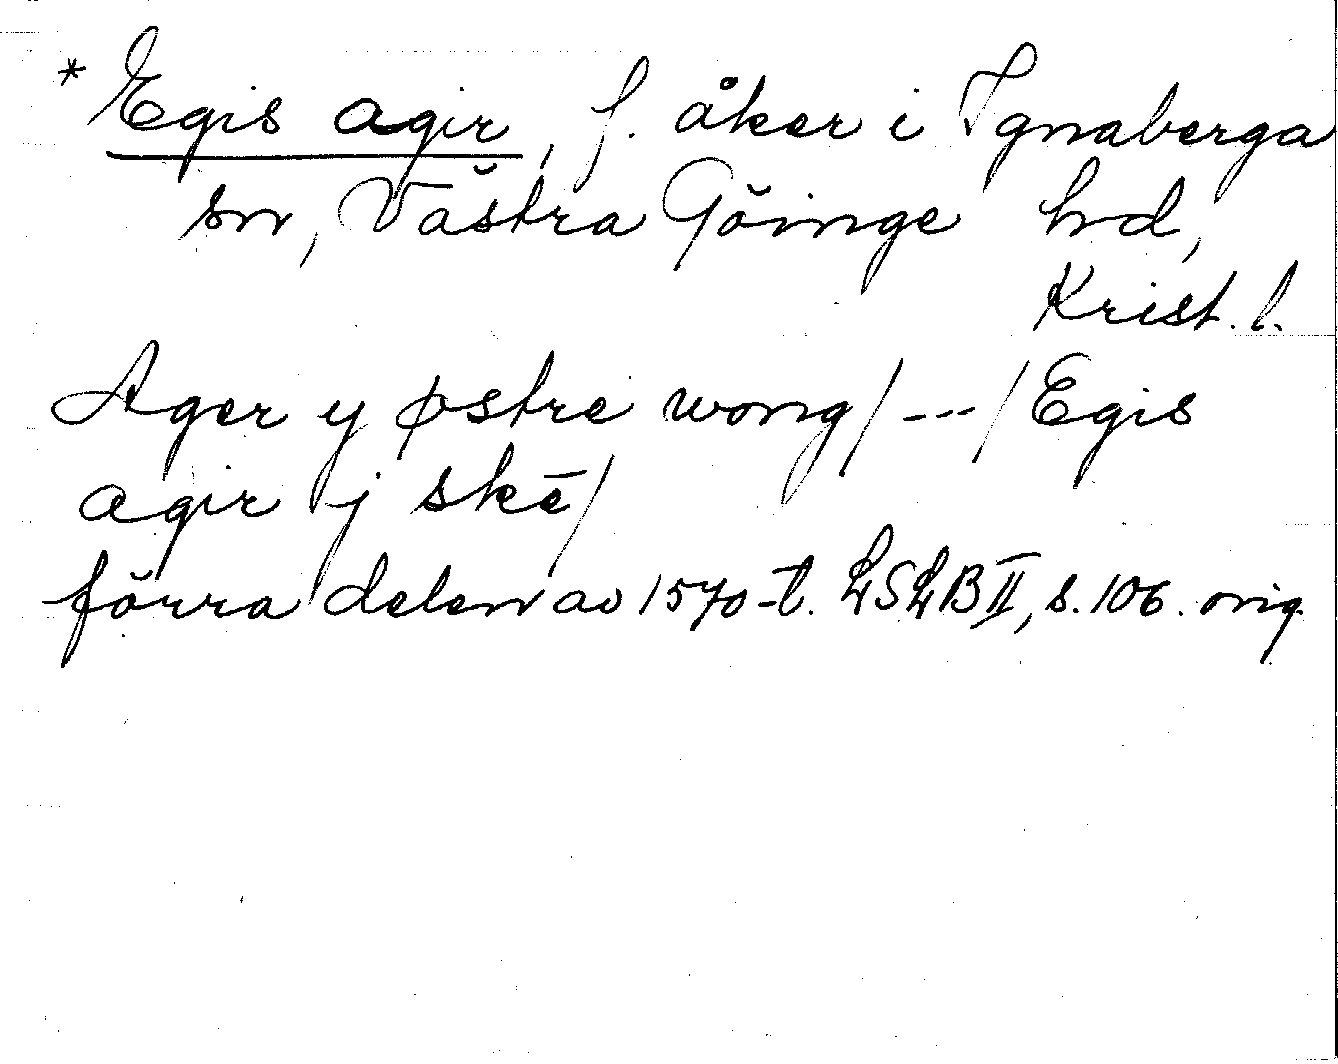 * Egis agir, f. åker i Ignaberga
sn, Västra Göinge hd,
Krist. l.
Ager y østre wong/---/Egis
agir j skē/
förra delen av 1570-t. LSLB II, s. 106. orig.